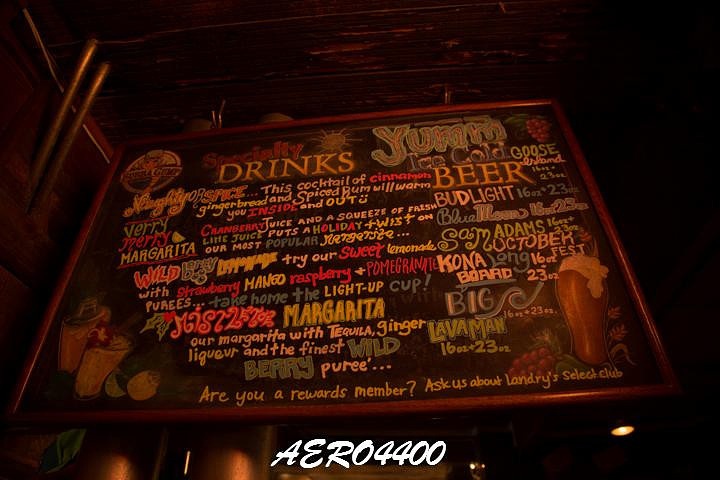 Specialty
DRINKS
Naughty or SPICE... This cocktail of cinnamon
gingerbread and Spiced Rum will warm
you INSIDE and OUT
Verry
merry
MARGARITA
CRANBERRY JUICE AND A SQUEEZE OF FRESH
LIME JUICE PUTS A HOLIDAY TWIST ON
OUR MOST POPULAR MARGARITA...
WILD BERRY LEMONADE try our Sweet lemonade
with strawberry MANGO raspberry + POMEGRANATE
PUREES... take home the LIGHT-UP CUP!
MISTLETOE MARGARITA
our margarita with TEQUILA, ginger
liqueur and the finest WILD
BERRY puree'...
Yumm
Ice Cold
BEER
GOOSE
Island
16oz
23oz
BUD LIGHT 16oz 23oz
Blue Moon 16oz 23oz
SAM ADAMS 16oz
OCTOBER 23oz
FEST
KONA Long
BOARD
16oz
23oz
BIG
16oz 23oz
LAVAMAN
16oz 23oz
Are you a rewards member? Ask us about Landry's Select club
AERO4400